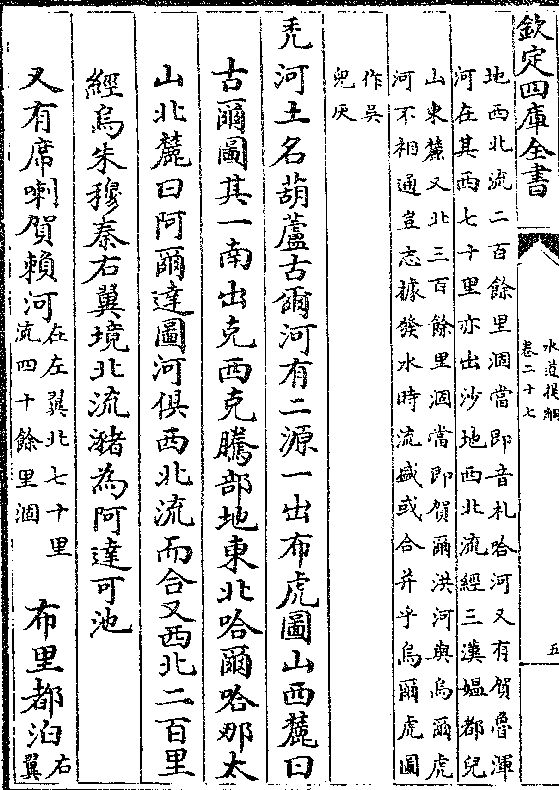 欽定四庫全書
水道提綱
卷二十七
五
地西北流二百餘里涸當即音札哈河又有賀魯渾
河在其西七十里亦出沙地西北流經三漢媼都兒
山東麓又北三百餘里涸當即賀爾洪河與烏爾虎
河不相通豈志據發水時流盛或合并乎烏爾虎圖
作吳
兕灰
禿河土名葫蘆古爾河有二源一出布虎圖山西麓曰
古爾圖其一南出克西克騰部地東北哈爾哈那太
山北麓曰阿爾達圖河俱西北流而合又西北二百里
經烏朱穆秦右翼境北流瀦為阿達可池
又有席喇賀賴河在左翼北七十里
流四十餘里涸
布里都泊右
翼